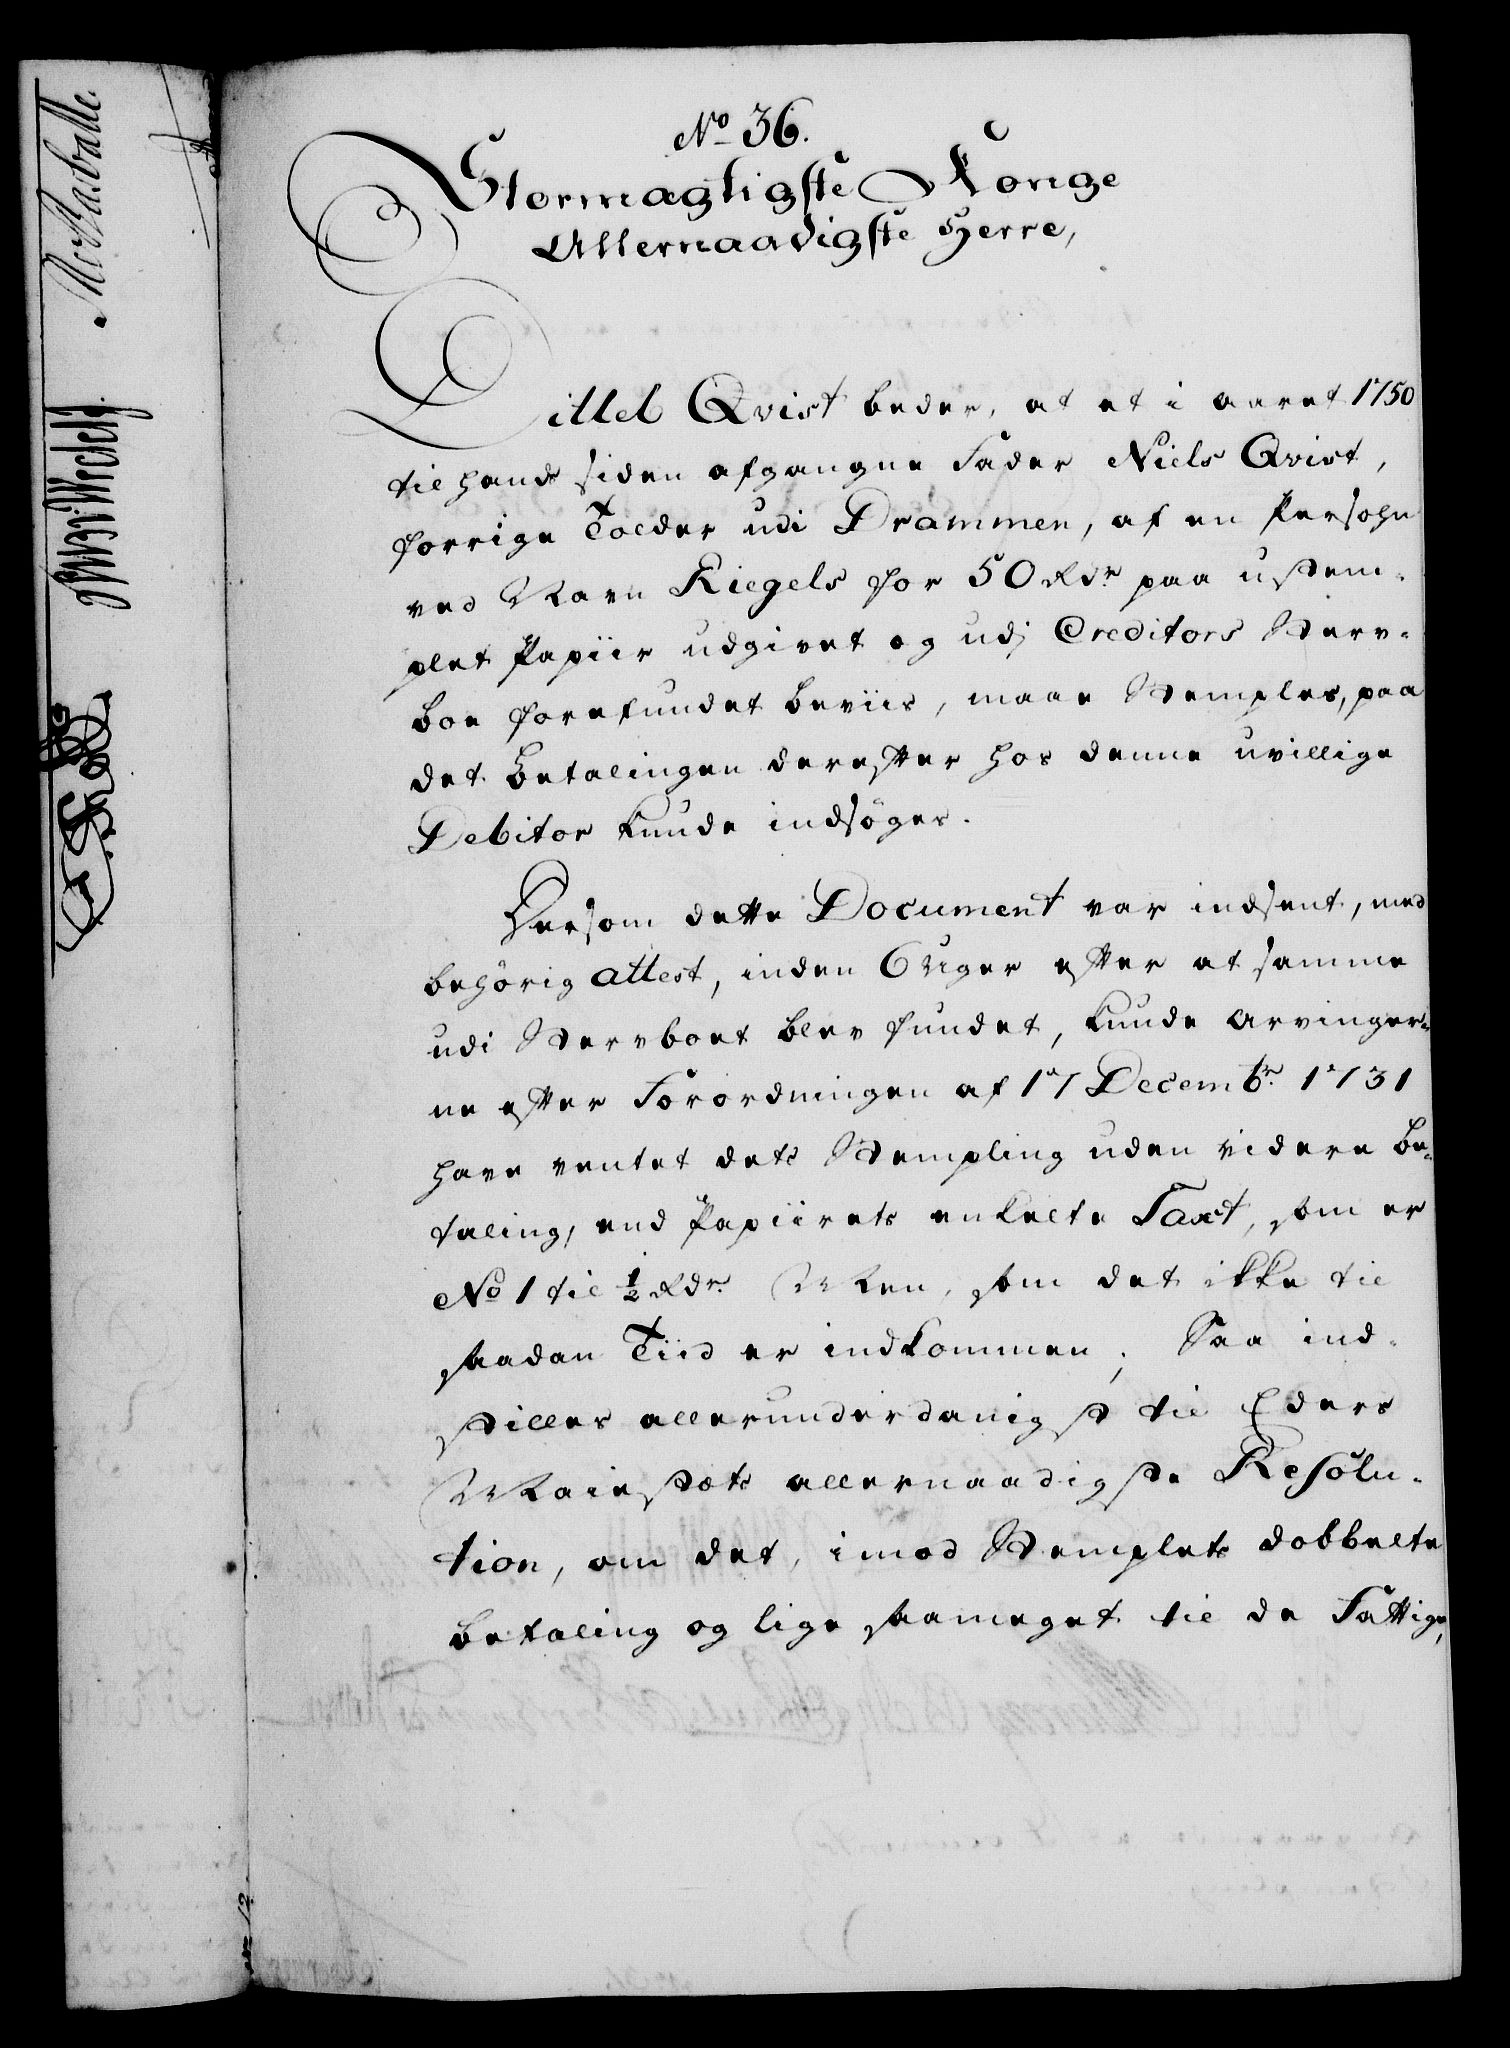 No 36.
Stormægtigste Konge
Allernaadigste Herre,
Ditlel Qvist beder, at et i aaret 1750
til hands siden afgangne Fader Niels Qvist,
forrige Tolder udi Drammen, af en Persohn
ved Navn Riegels for 50 Rdr paa ustem-
plet Papiir udgivet og udj Creditors Sterv-
boe forefundet beviis, maae Stemples, paa
det betalingen derefter hos denne uvillige
Debitor kunde indsöges.
Dersom dette Document var indsent, med
behörig attest, inden 6 Uger efter at samme
udi Stervboet blev fundet, kunde Arvinger-
ne efter Forordningen af 17 Decembr. 1731
have ventet dets Stempling uden videre be-
taling, end Papiirets enkelte Taxt, som er
No 1 til ½ Rdr. Men, som det ikke til
saadan Tiid er indkommen; Saa ind-
stilles allerunderdanigst til Eders
Maiestæts allernaadigste Resolu-
tion, om det, imod Stemplets dobbelte
betaling og lige saameget til de Fattige,